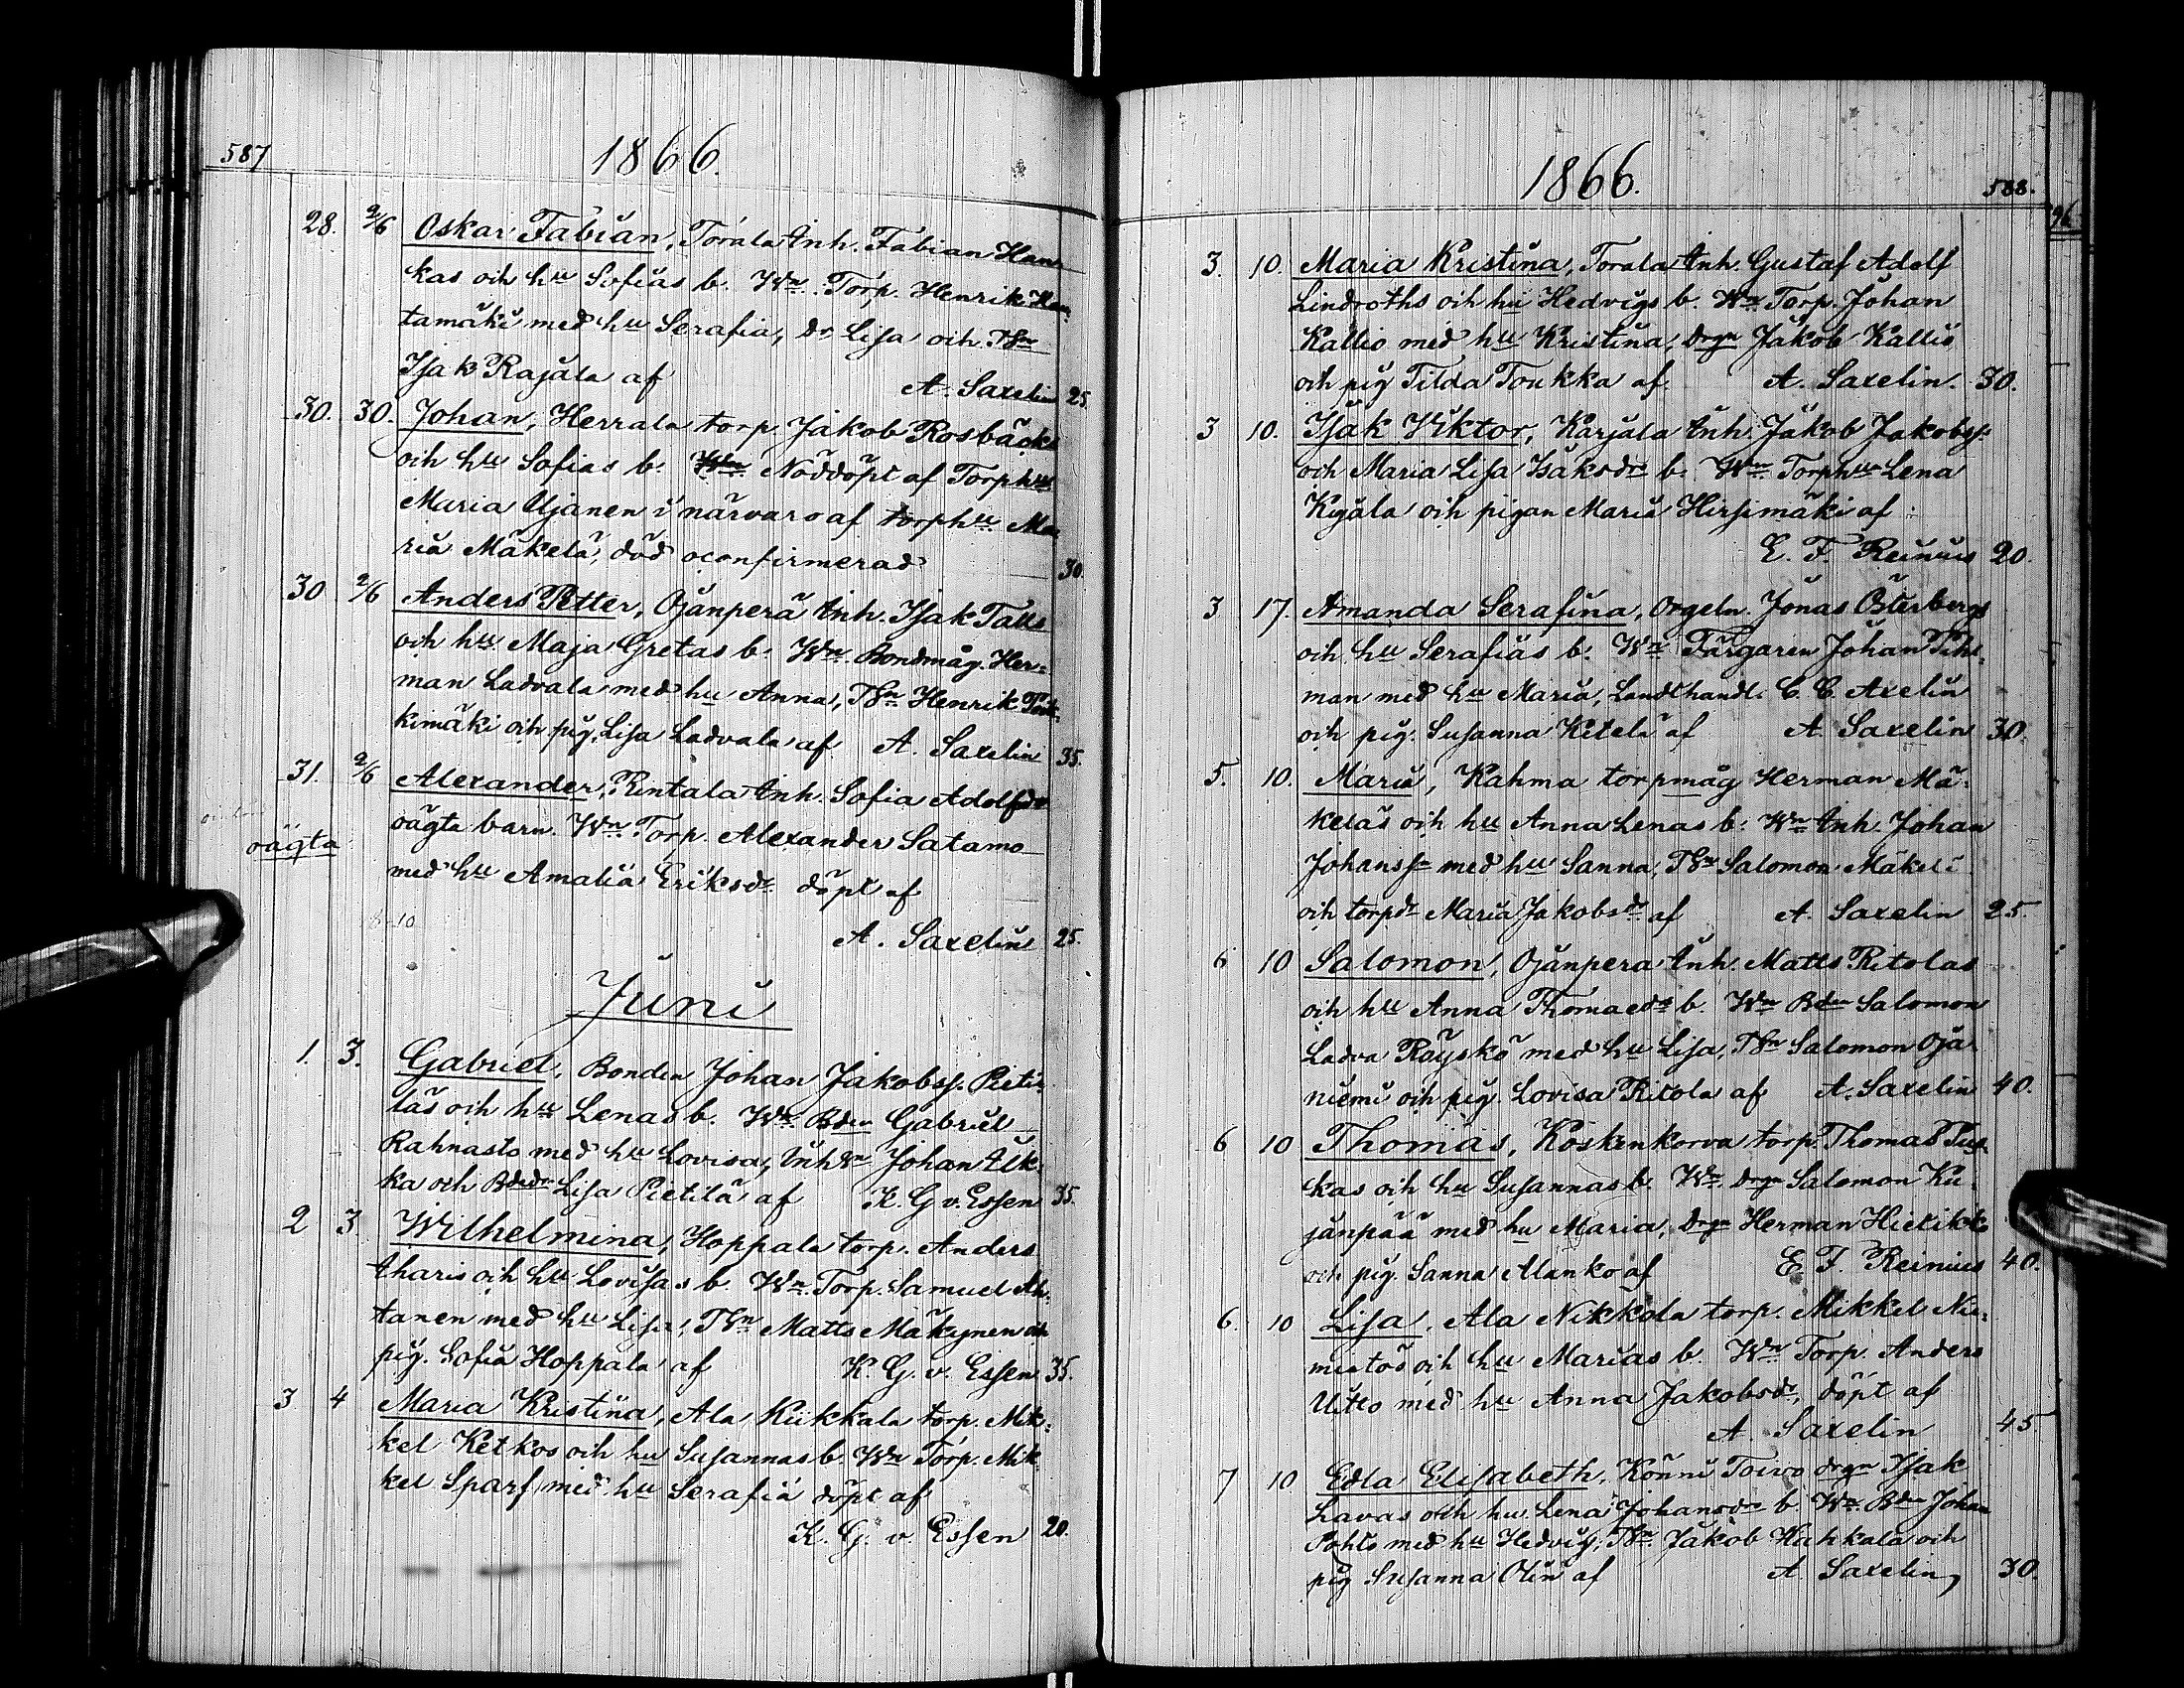 587
1866.
28. 2/6 Oskar Fabian, Torala Inh. Fabian Han-
kas och hu Sofias b. Wn. Torp. Henrik
tamäki med hu Serafia, Dr Lisa och
Isak Rajala af A. Saxelin 25.
30. 30. Johan, Herrala torp. Jakob Rosbäcks
och hu Sofias b. Nöddöpt af Torphu
Maria Ujanen i närvaro af torphu Ma
ria Mäkelä, död oconfirmerad 30.
30 2/6 Anders Petter, Ojanperä Inh. Isak Talls
och hu Maja Gretas b. Wn. Bondmåg. Her-
man Ladvala med hu Anna, Henrik
kimäki och pig. Lisa Ladvala af A. Saxelin 35.
31. 2/6 Alexander, Rintala Inh. Sofia Adolfsdr
oägta
oägta barn. Wn. Torp. Alexander Satamo
med hu Amalia Eriksdr. döpt af
A. Saxelin 25.
Juni
1. 3. Gabriel, Bonden Johan Jakobss. Pieti-
läs och hu Lenas b. Wn. Bden Gabriel
Rahnasto med hu Lovisa, Johan Ul-
ka och Bdedr Lisa Pietilä af K. G v. Essen 35.
2 3. Wilhelmina, Hoppala torp. Anders
Aharis och hu Lovisas b. Wn. Torp. Samuel Ah-
tanen med hu Lisa, Matts Mäkynen och
pig. Sofia Hoppala af K. G. v. Essen 35.
3 4 Maria Kristina, Ala Kiikkala torp. Mik-
kel Ketkos och hu Susannas b. Wn Torp. Mik-
kel Sparf med hu Serafia döpt af
K. G. v. Essen 20.
1866.
588.
3. 10. Maria Kristina, Torala Inh. Gustaf Adolf
Lindroths och hu Hedvigs b. Wn Torp. Johan
Kallio med hu Kristina, Drgn Jakob Kallio
och pig Tilda Toukka af A. Saxelin. 30.
3 10. Isak Viktor, Karjala Inh. Jakob Jakobss.
och Maria Lisa Isaksdr b. Wn. Torphu Lena
Kyjala och pigan Maria Hirsimäki af
E. F. Reinius 20.
3. 17. Amanda Serafina, Orgeln. Jonas Österbergs
och hu Serafias b. Wn Färgaren Johan
man med hu Maria, Landthandl. C. C. Axelin
och pig. Susanna Ketelä af A. Saxelin 30.
5. 10. Maria, Kahma torpmåg Herman Mä-
keläs och hu Anna Lenas b. Wn Inh. Johan
Johanss med hu Sanna, Salomon Mäkelä
och torpdr Maria Jakobsdr af A. Saxelin 25.
6 10 Salomon, Ojanpera Inh. Matts Ritolas
och hu Anna Thomaedr b. Wn Bden Salomon
Ladva Röyskö med hu Lisa, Salomon Oja
niemi och pig. Lovisa Ritola af A. Saxelin 40.
6 10 Thomas, Koskenkorva torp. Thomas
kas och hu Susannas b. Wn. Drgn Salomon Ku-
janpää med hu Maria, Drgn Herman Hietikko
och pig. Sanna Alanko af E. F. Reinius 40.
6. 10 Lisa, Ala Nikkola torp. Mikkel Nie-
mistös och hu Marias b. Wn Torp. Anders
Uitto med hu Anna Jakobsdr, döpt af
A. Saxelin 45
7 10 Edla Elisabeth, Könni Toivo drgn Isak
Lavas och hu Lena Johansdr b. Wn Bden Johan
Pohto med hu Hedvig, Jakob Kuhkala och
pig Susanna Olin af A. Saxelin, 30.